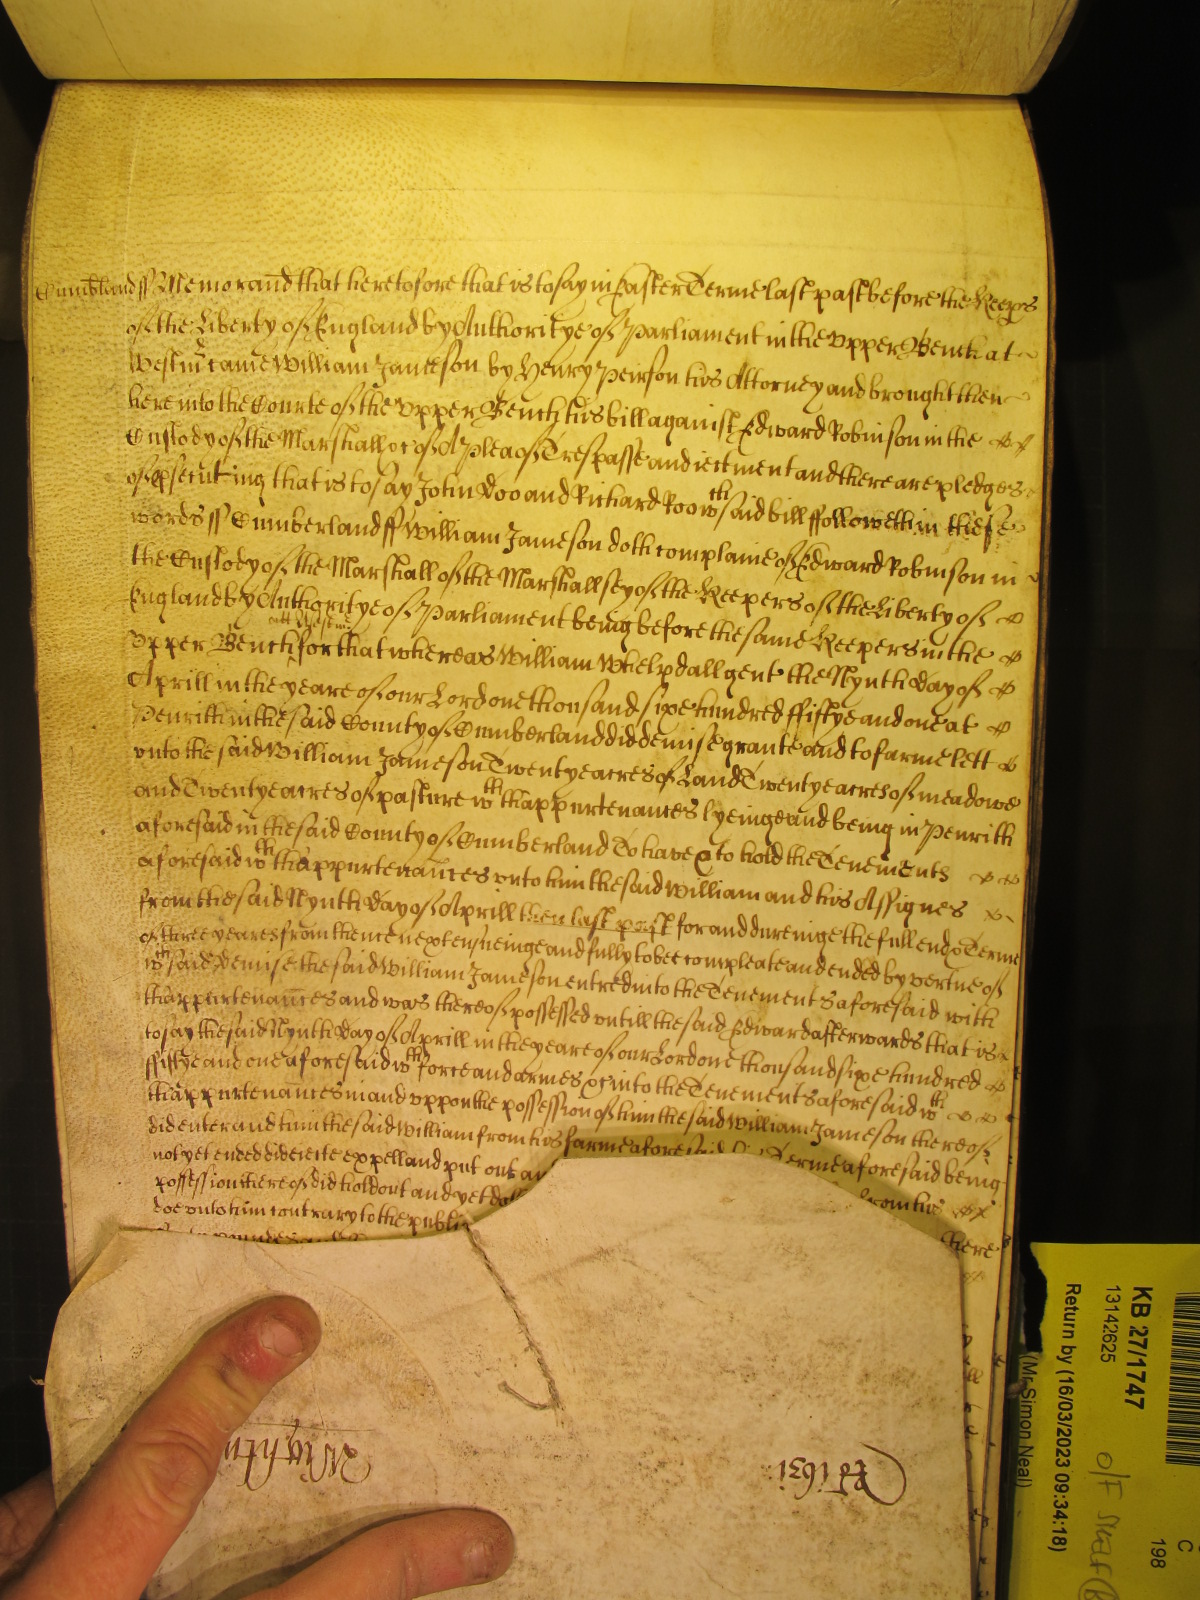 Cumbland ss Memorand that heretofore that is to say in Easter Terme last past before the Keeps
of the Liberty of England by Authoritye of Parliament in the vpper Bench at
Westmr came William Jameson by Henry Peirson his Attorney and brought then
here into the Courte of the vpper Bench his bill against Edward Robinson in the
Custody of the Marshall &c of A plea of Trespasse and eiectment and there are pledges
of psecuting that is to say John Doo and Richard Roo wch said bill ffolloweth in these
words ss Cumberland ss William Jameson doth complaine of Edward Robinson in
the Custody of the Marshall of the Marshallsey of the Keepers of the Liberty of
England by Authoritye of Parliament being before the same Keepers in the
vpper Bench for that whereas William Whelpdall gent the Nynth day of
Aprill in the yeare of our Lord one thousand sixe hundred ffiftye and one at
Penrith in the said County of Cumberland did demise grante and to farme lett
vnto the said William Jameson Twentye acres of Land Twentye acres of meadowe
and Twentye acres of pasture wth thappurtenances lyeinge and being in Penrith
aforesaid in the said County of Cumberland To have & to hold the Tenements
aforesaid wth thappurtenances vnto him the said William and his Assignes
from the said Nynth day of Aprill then last past for and dureinge the full end & Terme
of three yeares from thence next ensueinge and fully to bee compleate and ended by vertue of
wch said demise the said William Jameson entred into the Tenements aforesaid with
thappurtenances and was thereof possessed vntill the said Edward afterwards that is
to say the said Nynth day of Aprill in the yeare of our Lord one thousand sixe hundred
ffiftye and one aforesaid wth force and armes &c into the Tenements aforesaid wth
thappurtenances in and vppon the possession of him the said William Jameson thereof
did enter and him the said William from his farme aforesaid Terme aforesaid being
not yet ended did eiecte expell and put out an from his
possession thereof did hold out and yet doth
doe vnto him contrary to the publi here
Wighton
Pas 1651
KB 27/1747
13142625
Return by (16/03/2023 09:34:18)
(Mr Simon Neal)
O/F
C
198